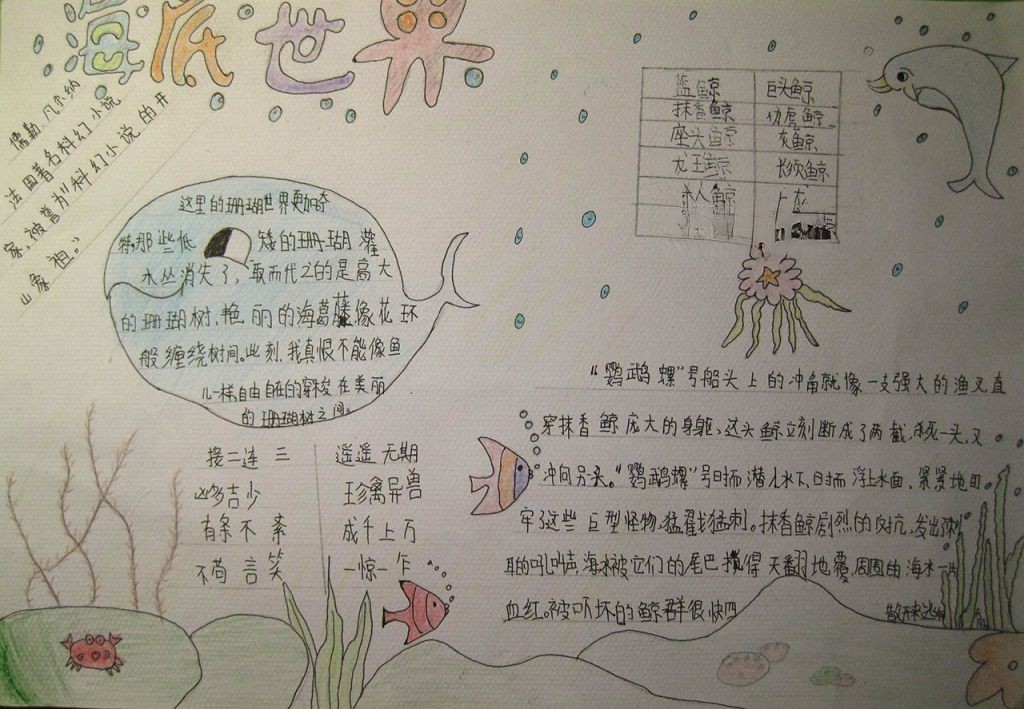 海底世界
儒勒.凡尔纳
法国著名科幻小说
家,被誉为科幻小说的开
山鼻祖。"
这里的珊瑚世界更加奇
特,那些低矮的珊瑚灌
木丛消失了,取而代之的是高大
的珊瑚树,艳丽的海葛藤像花环
般缠绕树间。此刻,我真恨不能像鱼
儿一样,自由自在的穿梭在美丽
的珊瑚树之间。
蓝鲸 巨头鲸
抹香鲸 仿虎鲸
座头鲸 灰鲸
龙王鲸 长须鲸
杀人鲸
接二连三 遥遥无期
凶多吉少 珍禽异兽
有条不紊 成千上万
不苟言笑 一惊一乍
"鹦鹉螺"号船头上的冲角就像一支强大的渔叉直
穿抹香鲸庞大的身躯,这头鲸立刻断成了两截,杀死一头,又
冲向另头。"鹦鹉螺"号时而潜入水下,时而浮上水面,紧紧地盯
牢了这些巨型怪物,猛戳猛刺。抹香鲸剧烈的反抗,发出刺
耳的吼声,海水被它们的尾巴搅得天翻地覆,周围的海水一片
血红。被吓坏的鲸群很快四散开来逃